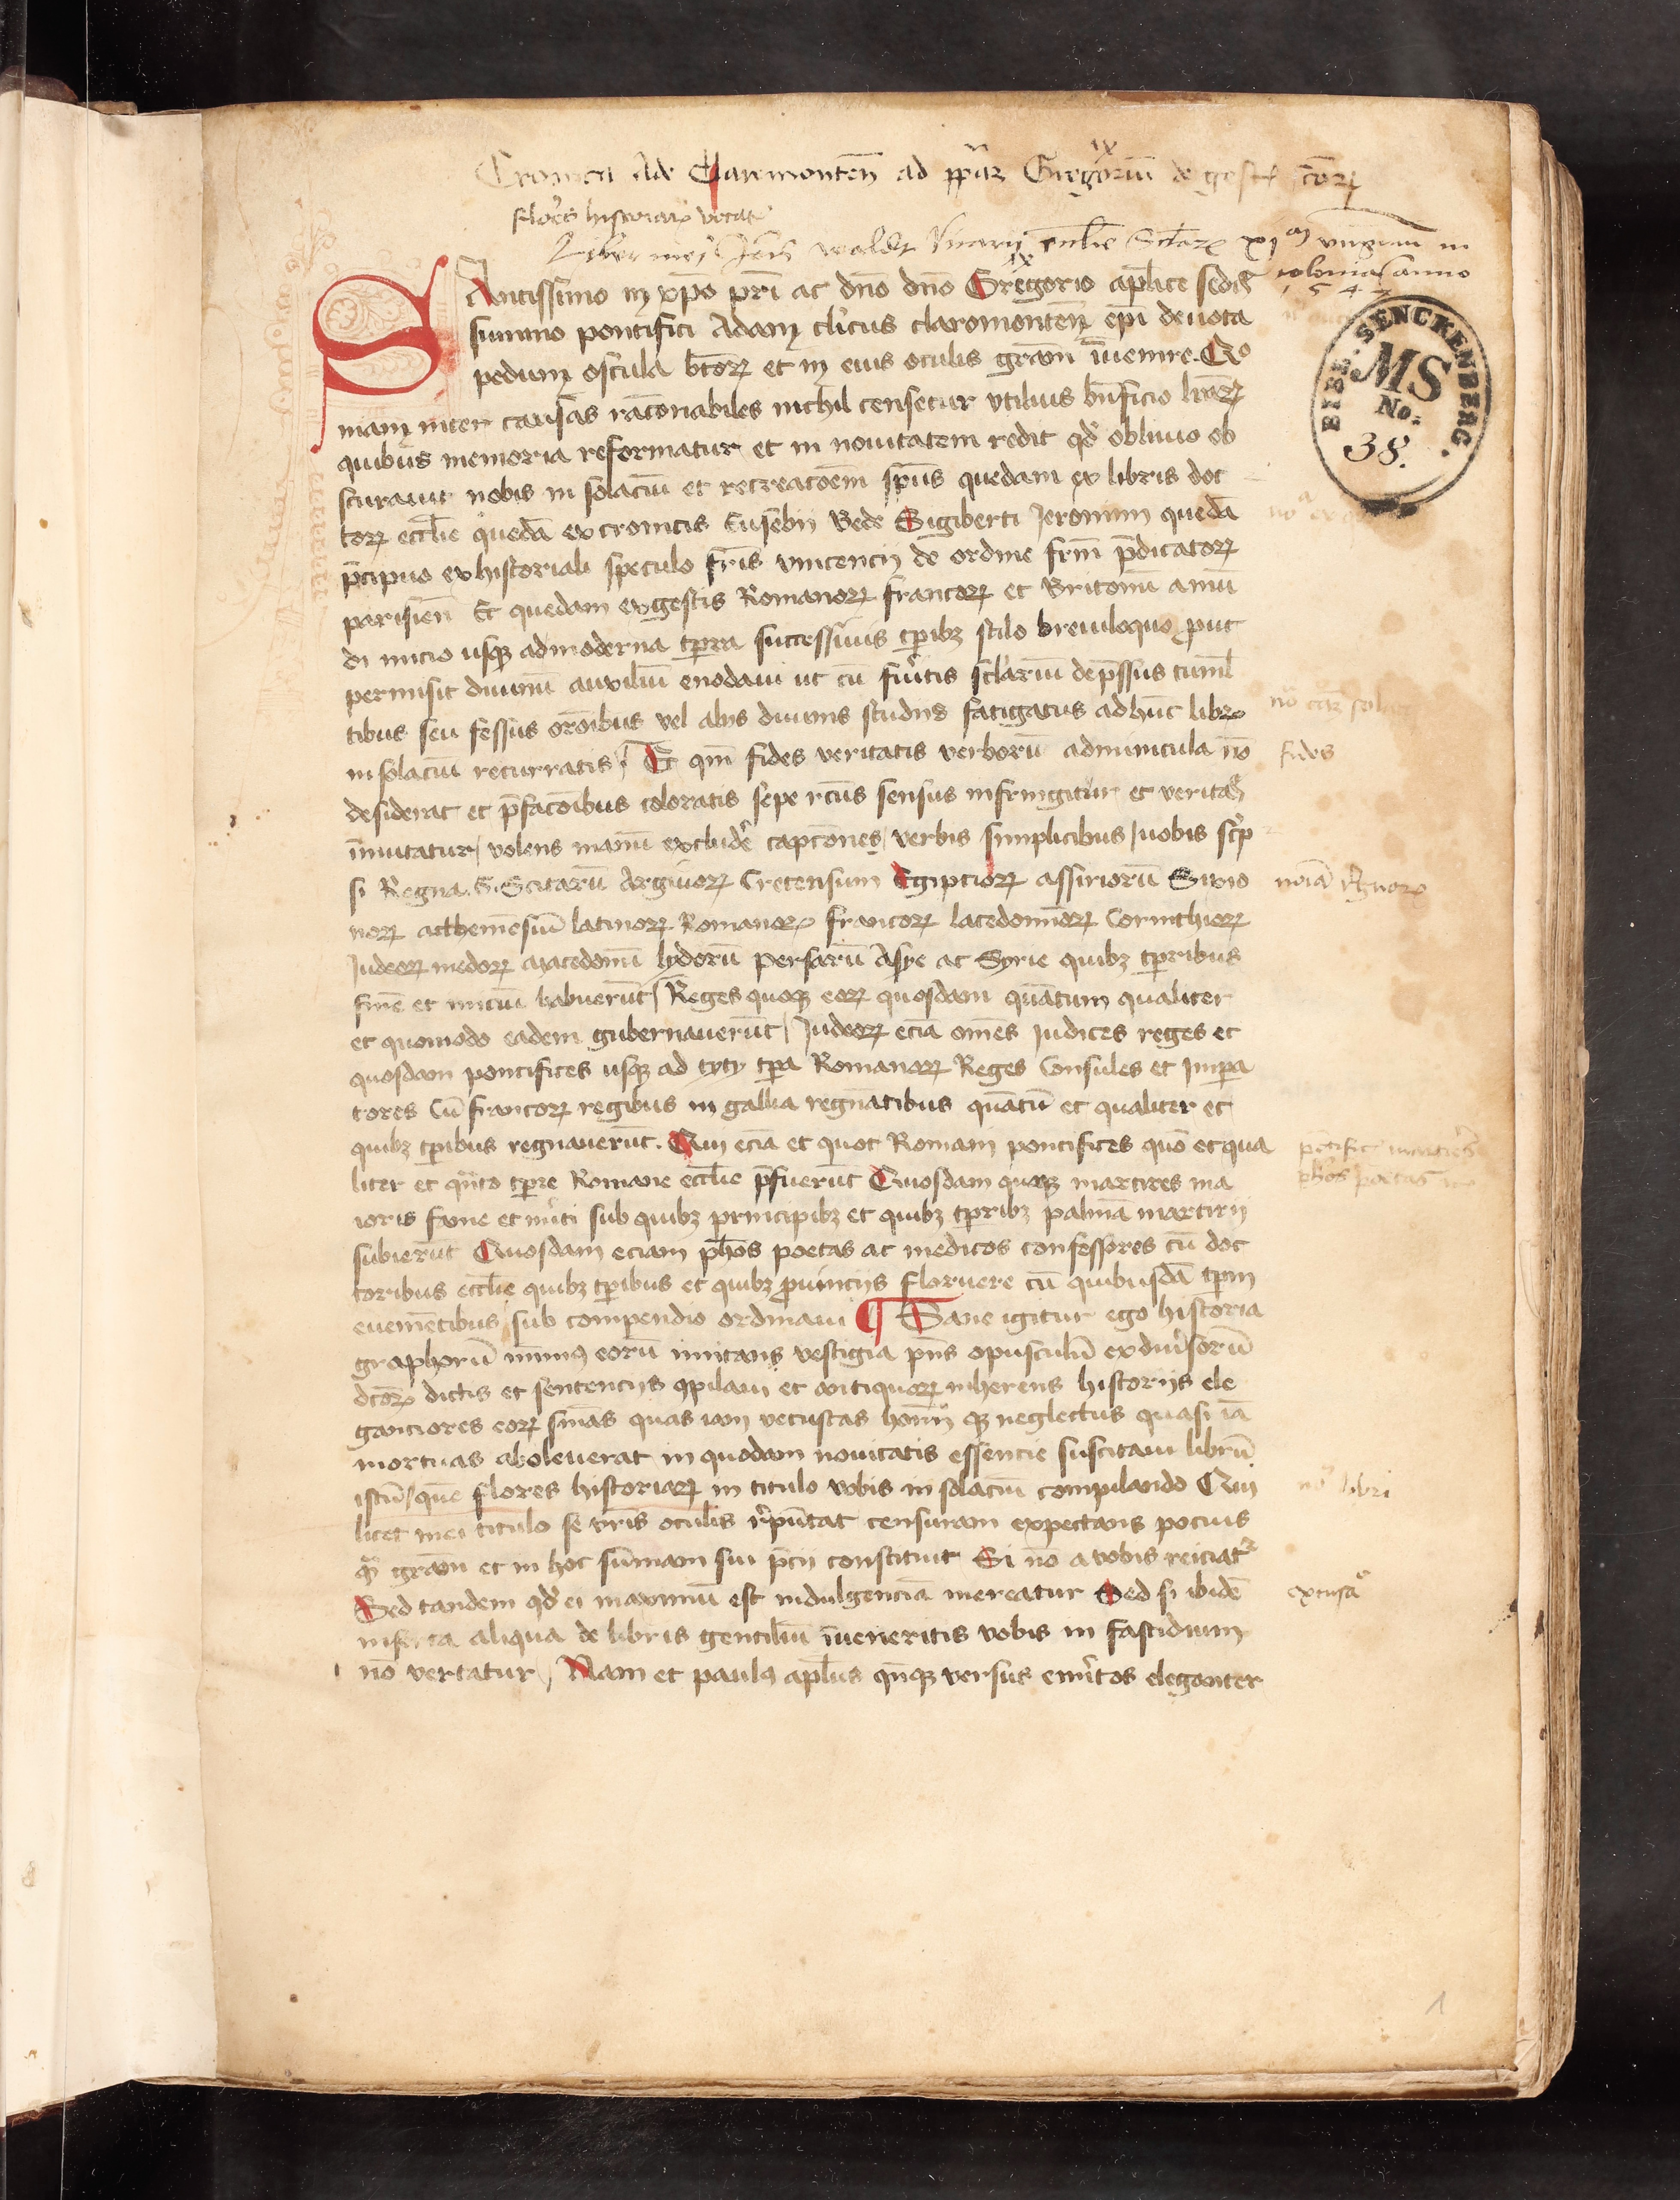 Cronica Ade Claremonten̄ ad pp̄ā Gregoriū ix de gest̄ eorꝝ
flores historiarꝝ vocat᷑
Liber mei Joh̄is Vicarij eccl̄ie Sctārꝝ xi m virginū in
colonia anno
1547
SAntissimo in xp̄o pr̄i ac dn̄o dn̄o Gregorio ix ap̄lice sedis
summo pontifici Adam cl̓icus claromonten̄ ep̄i deuota
pedum oscula bt̄orꝝ et in eius oculis grām īuenire. Qo
niam inter causas rac̄onabiles nichil censetur vtilius bn̄ficio lrārꝝ
quibus memoria reformatur et in nouitatem redit qd̓ obliuio ob
scurauit nobis in solaciū et recreac̄oem sp̄us quedam ex libris doc
torꝝ eccl̄ie quedā ex cronicis Eusebij Bede Sigiberti Jeronimi quedā
p̄cipuo ex historiali speculo fr̄is vincencij de ordine fr̄m p̄dicatorꝝ
parisien̄ Et quedam ex gestis Romanorꝝ francorꝝ et Britonū a mū
di inicio usqꝫ ad moderna tp̄ra successiuis tp̄ibꝫ stilo breuiloquo ꝓut
permisit diuinū auxiliū enodaui ut cū fuītis sclāriū dep̄ssus tumĺ
tibus seu fessus orōnibus vel alijs diuinis studijs fatigatus ad hūc librꝝ
in solaciū recurratis / Et qm̄ fides veritatis verborū adminicula nō
desiderat et p̄fac̄onibus coloratis sepe rc̄us sensus infringitur et veritas
īmutatur / volens inaniū excludē capc̄ones / verbis simplicibus / uobis sc̓p
si Regna .S. Scitarū Argiuorꝝ Cretensium Egiptiorꝝ assiriorū Sicio
norꝝ atthenēsiū latinorꝝ Romanorꝝ francorꝝ lacedomīorꝝ Corinthiorꝝ
Judeorꝝ medorꝝ Macedonū lydorū persarū Asye ac Syrie quibꝫ tp̄ribus
finē et iniciū habuerūt / Reges quoqꝫ eorꝝ quosdam quātum qualiter
et quomodo eadem gubernauerūt / Judeorꝝ eciā omēs Judices reges et
quosdam pontifices usqꝫ ad tyty tp̄a Romanorꝝ Reges Consules et Imp̄a
tores Cū francorꝝ regibus in gallia regnātibus quātū et qualiter et
quibꝫ tp̄ibus regnauerūt. Qui eciā et quot Romani pontifices quō et qua
liter et qn̄to tp̄re Romane eccl̄ie p̄fuerūt Quosdam quoqꝫ martires ma
ioris fame et mīti sub quibꝫ principibꝫ et quibꝫ tp̄ribꝫ palmā martirij
subierūt Quosdam eciam ph̄os poetas ac medicos confessores cū doc
toribus eccl̄ie quibꝫ tp̄ibus et quibꝫ ꝓuincijs floruere cū quibusdā tp̄m
euenientibus sub compendio ordinaui ¶ Sane igitur ego historia
graphorū minimꝰ eorū imitans vestigia pn̄s opusculū ex diu̓sorū
dc̄orꝝ dictis et sentencijs ꝯpilaui et antiquorꝝ inherens historijs ele
ganciores eorꝝ sniās quas iam vetustas hoīm qꝫ neglectus quasi iā
mortuas aboleuerat in quodam nouitatis essencie suscitaui librū
istū / quē flores historiarꝝ in titulo vobis in solaciū compilando Qui
licet mei titulo se vr̄is oculis rp̄ūtat censuram expectans pocius
qͣ grām et in hoc sūmam sui p̄cij constituit Si nō a vobis reiciat᷑
Sed tandem qd̓ ei maximū est indulgenciā mereatur Sed si ibidē
inserta aliqua de libris gentiliū īueneritis vobis in fastidium
nō vertatur / Nam et paulꝰ ap̄lus qn̄qꝫ versus emītos eleganter
fides
noīa regnorꝝ
pōtific̄ martires
ph̄os poetas
no libri
excusa᷑
BIBL. SENCKENBERG.
MS
No:
38.
1